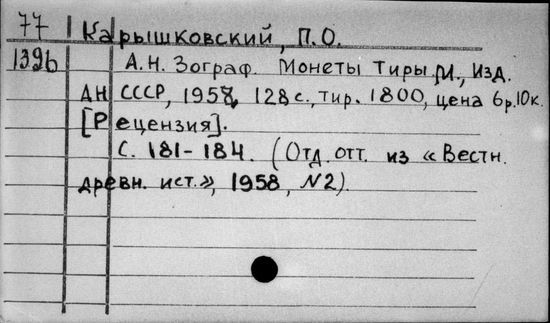 77 Карышковский, П.О.
139б А.Н. Зограф. Монеты Тиры. М., Изд.
АН СССР, 1957, 128 с., тир. 1800, цена 6р.10к.
[Рецензия].
С. 181-184. (Отд. отт. из «Вестн.
древн. ист.», 1958, №2).